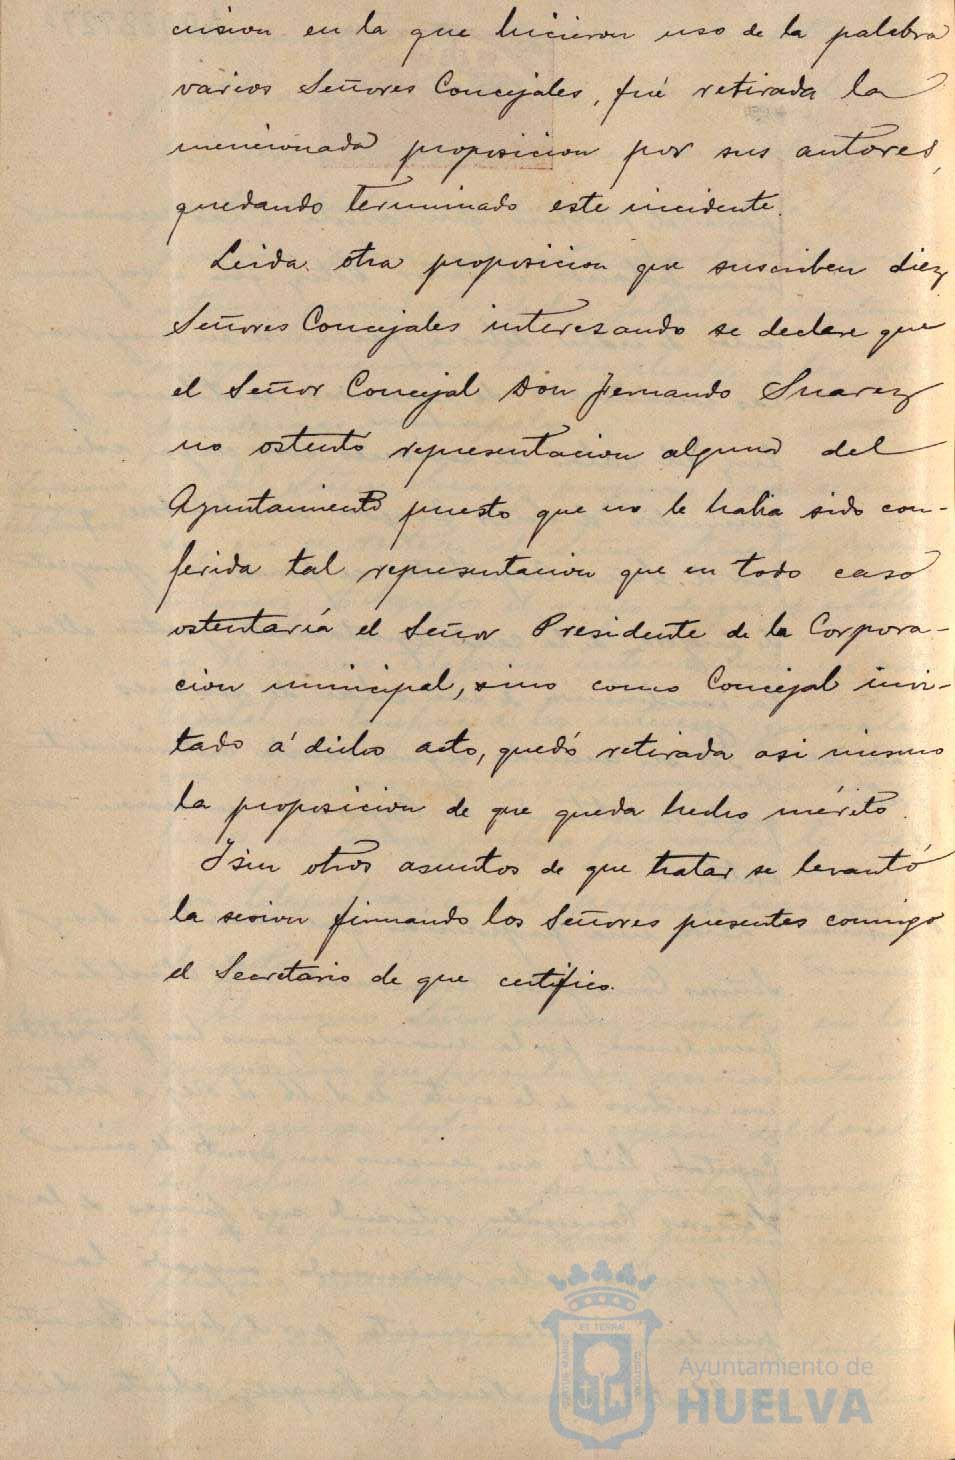 cusion en la que hicieron uso de la palabra
varios Señores Concejales, fué retirada la
mencionada proposicion por sus autores,
quedando terminado este incidente.
Leida otra proposicion que suscriben diez
Señores Concejales interesando se declare que
el Señor Concejal Don Fernando Suarez
no ostentó representacion alguna del
Ayuntamiento puesto que no le habia sido con-
ferida tal representacion que en todo caso
ostentaría el Señor Presidente de la Corpora-
cion municipal, sino como Concejal invi-
tado á dicho acto, quedó retirada asi mismo
la proposicion de que queda hecho mérito.
Y sin otros asuntos de que tratar se levantó
la sesion firmando los Señores presentes conmigo
el Secretario de que certifico.
ET TERRÆ
PORTUS MARIS
CUSTODIA
Ayuntamiento de
HUELVA